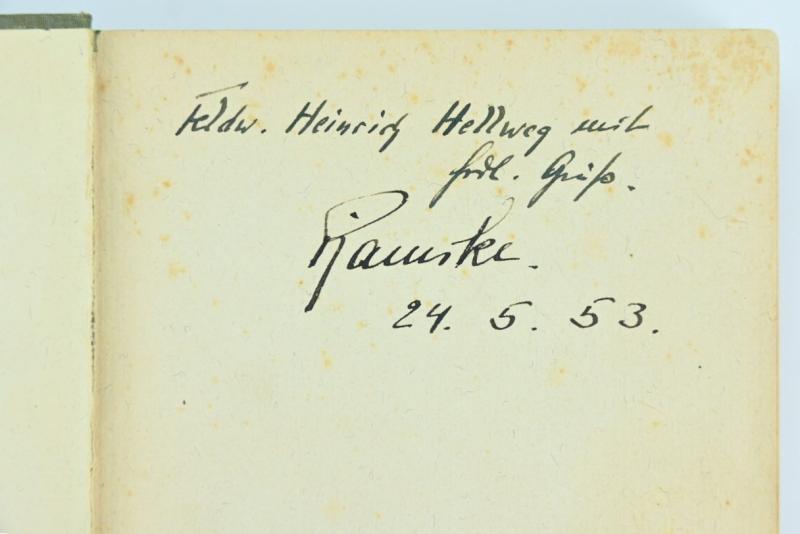 Feldw. Heinrich Hellweg mit
frdl. Gruß.
Ramcke.
24. 5. 53.